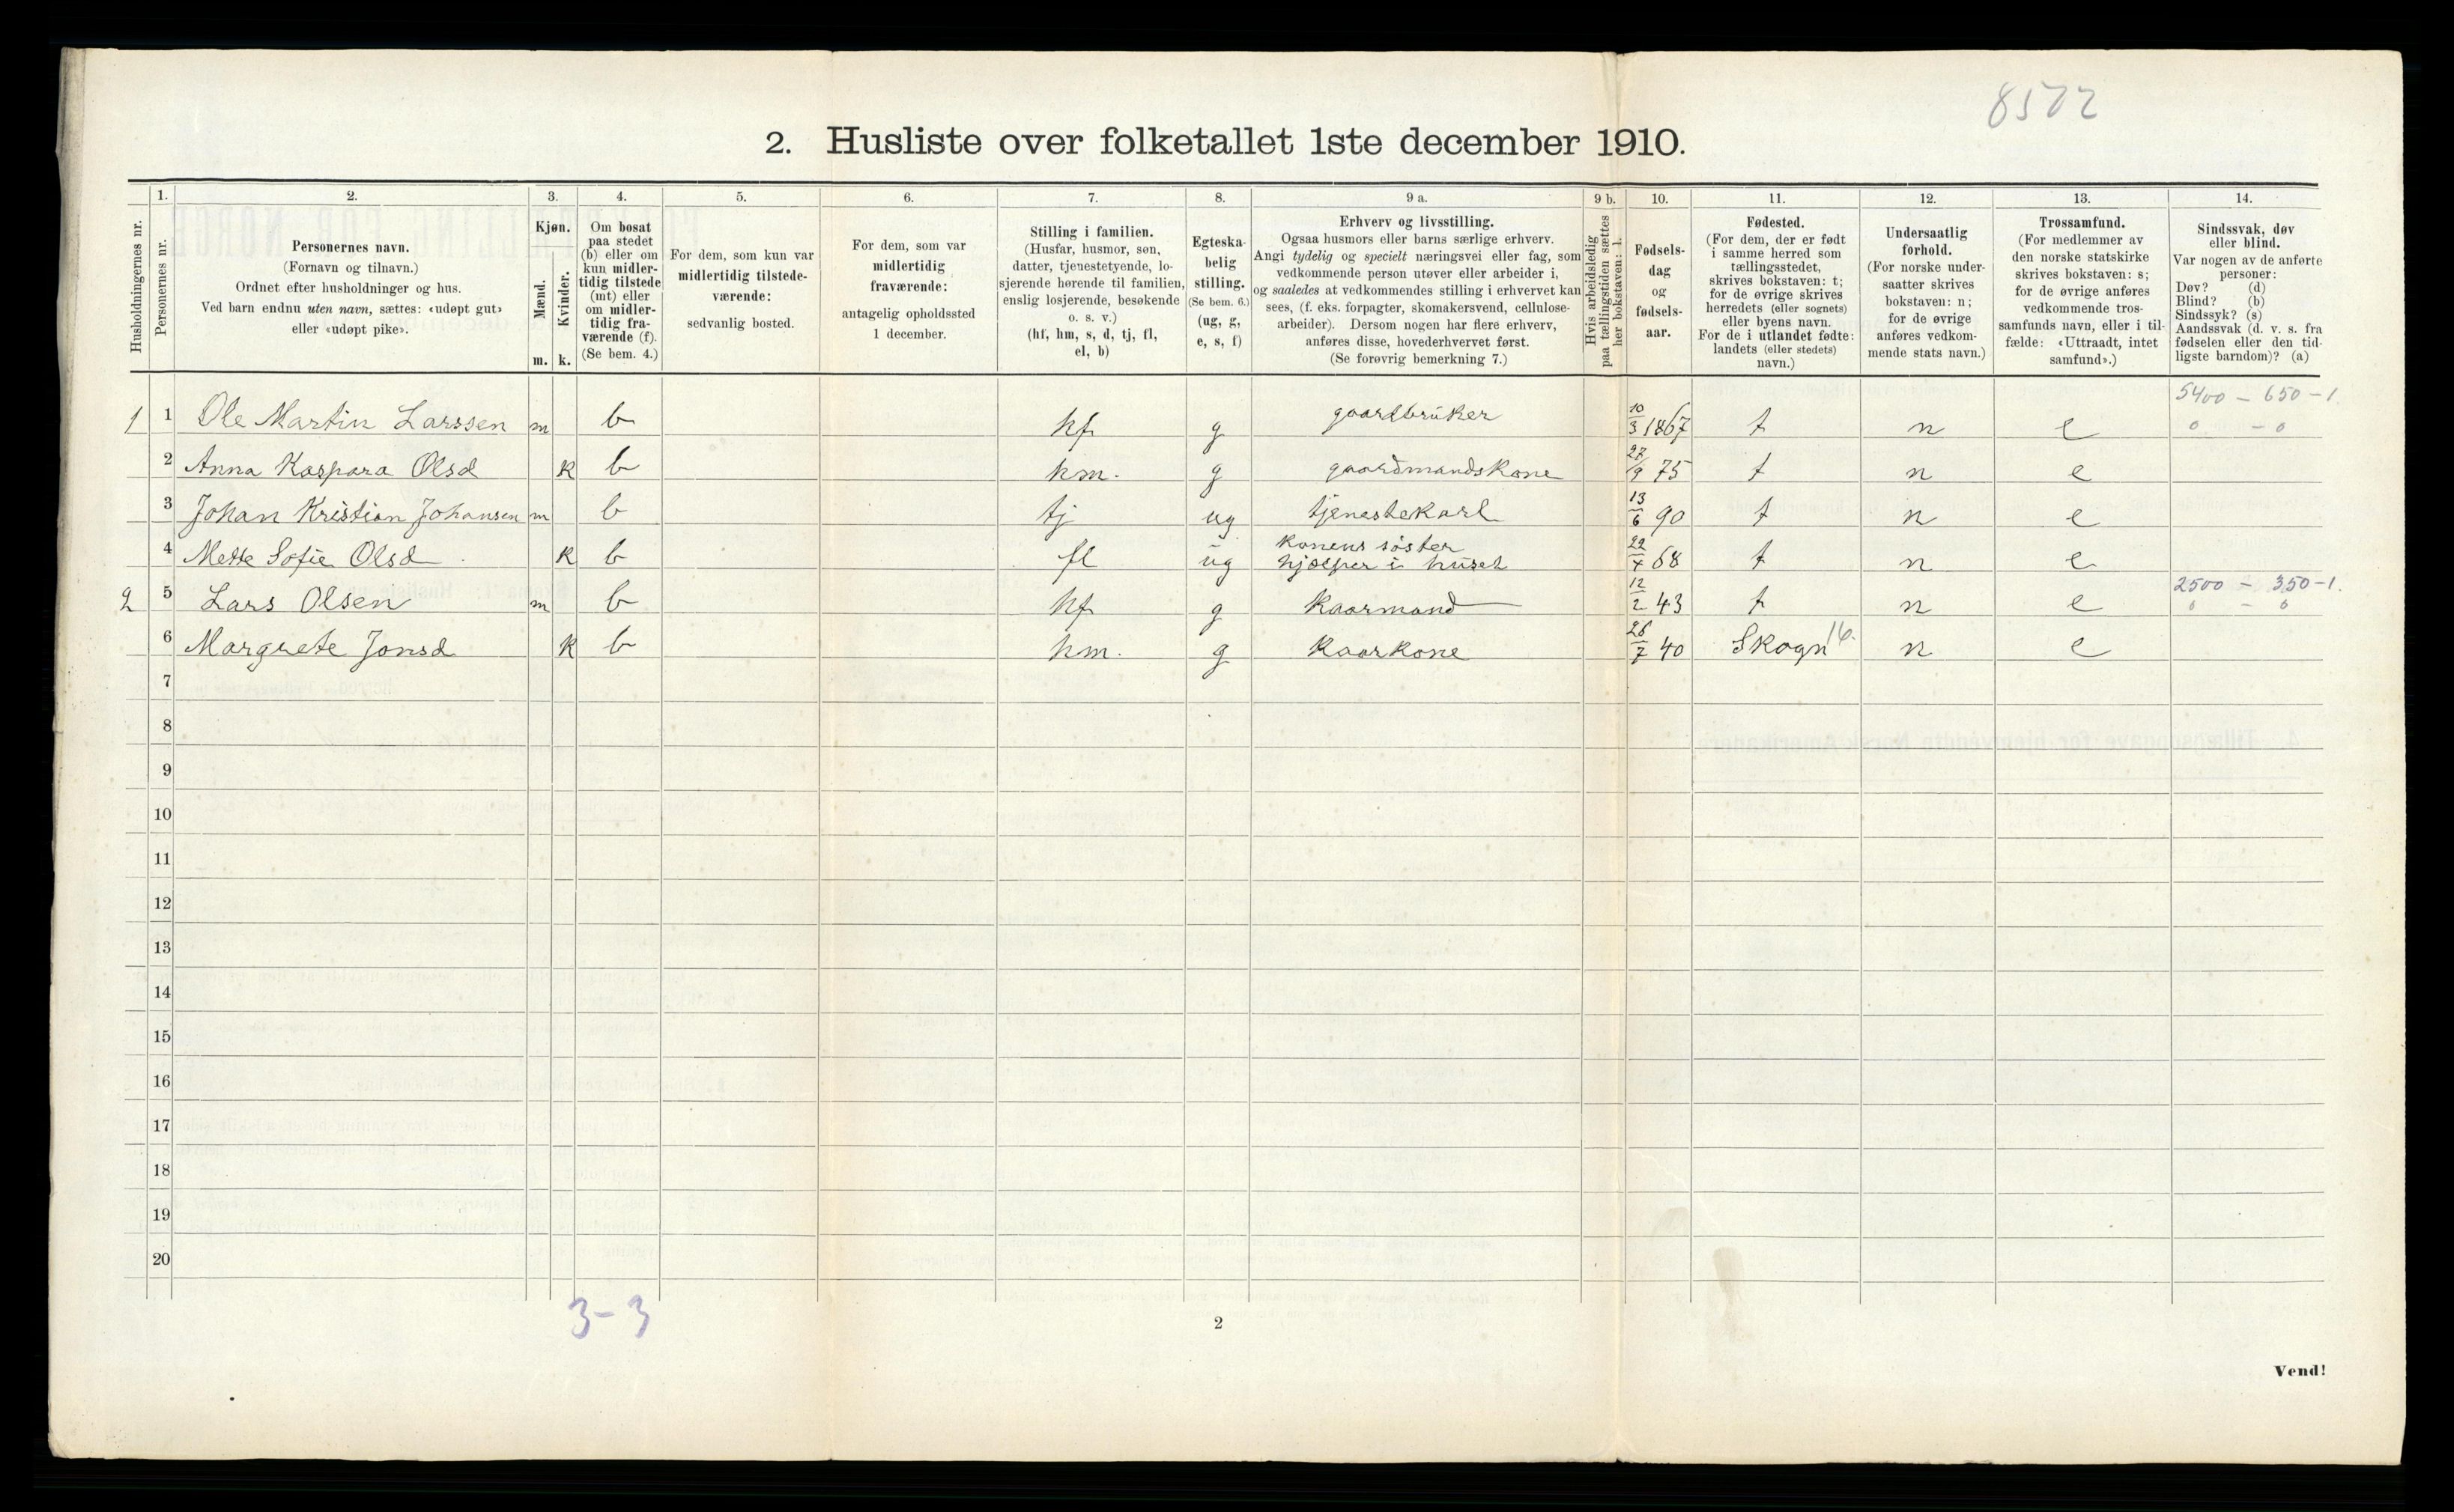 8572
2. Husliste over folketallet 1ste december 1910.
Husholdningernes nr.
1.
Personernes nr.
2.
Personernes navn.
(Fornavn og tilnavn.)
Ordnet efter husholdninger og hus.
Ved barn endnu uten navn, sættes: «udøpt gut»
eller «udøpt pike».
3.
Kjøn.
Mænd.
m.
Kvinder.
k.
4.
Om bosat
paa stedet
(b) eller om
kun midler-
tidig tilstede
(mt) eller
om midler-
tidig fra-
værende (f).
(Se bem. 4.)
5.
For dem, som kun var
midlertidig tilstede-
værende:
sedvanlig bosted.
6.
For dem, som var
midlertidig
fraværende:
antagelig opholdssted
1 december.
7.
Stilling i familien.
(Husfar, husmor, søn,
datter, tjenestetyende, lo-
sjerende hørende til familien,
enslig losjerende, besøkende
o. s. v.)
(hf, hm, s, d, tj, fl,
el, b)
8.
Egteska-
belig
stilling.
(Se bem. 6.)
(ug, g,
e, s, f)
9 a.
Erhverv og livsstilling.
Ogsaa husmors eller barns særlige erhverv.
Angi tydelig og specielt næringsvei eller fag, som
vedkommende person utøver eller arbeider i,
og saaledes at vedkommendes stilling i erhvervet kan
sees, (f. eks. forpagter, skomakersvend, cellulose-
arbeider). Dersom nogen har flere erhverv,
anføres disse, hovederhvervet først.
(Se forøvrig bemerkning 7.)
9 b.
Hvis arbeidsledig
paa tællingstiden sættes
her bokstaven: l.
10.
Fødsels-
dag
og
fødsels-
aar.
11.
Fødested.
(For dem, der er født
i samme herred som
tællingsstedet,
skrives bokstaven: t;
for de øvrige skrives
herredets (eller sognets)
eller byens navn.
For de i utlandet fødte:
landets (eller stedets)
navn.)
12.
Undersaatlig
forhold.
(For norske under-
saatter skrives
bokstaven: n;
for de øvrige
anføres vedkom-
mende stats navn.)
13.
Trossamfund.
(For medlemmer av
den norske statskirke
skrives bokstaven: s;
for de øvrige anføres
vedkommende tros-
samfunds navn, eller i til-
fælde: «Uttraadt, intet
samfund».)
14.
Sindssvak, døv
eller blind.
Var nogen av de anførte
personer:
Døv? (d)
Blind? (b)
Sindssyk? (s)
Aandssvak (d. v. s. fra
fødselen eller den tid-
ligste barndom)? (a)
5400 - 650 - 1
1 1 Ole Martin Larssen m b hf g gaardbruker 10/3 1867 t n e 0 - 0
2 Anna Kaspara Olsd k b hm. g gaardmandskone 27/9 75 t n e
3 Johan Kristian Johansen m b tj ug tjenestekarl 13/6 90 t n e
4 Mette Sofie Olsd k b fl ug konens søster
hjælper i huset 22/4 68 t n e
2500 - 350-1.
2 5 Lars Olsen m b hf g Kaarmand 12/2 43 t n e 0 - 0
6 Margrete Jonsd k b hm. g Kaarkone 26/7 40 Skogn 16. n e
7
8
9
10
11
12
13
14
15
16
17
18
19
20
3-3
2
Vend!